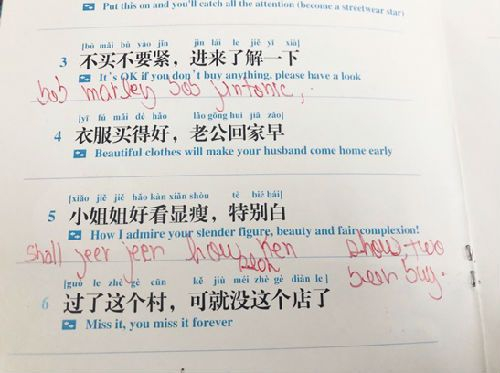 Put this on and you'll catch all the attention (become a streetwear star)
[bù mǎi bù yào jǐn jìn lái le jiě yī xià]
3 不买不要紧，进来了解一下
It's OK if you don't buy anything, please have a look
bob marley bob jintonic,.
[yī fú mǎi dé hǎo lǎo gōng huí jiā zǎo]
4 衣服买得好，老公回家早
Beautiful clothes will make your husband come home early
[xiǎo jiě jiě hǎo kàn xiǎn shòu tè bié bái]
5 小姐姐好看显瘦，特别白
How I admire your slender figure, beauty and fair complexion!
shall jeer jeer how show two
bean buy.
[guò le zhè gè cūn kě jiù méi zhè gè diàn le]
6 过了这个村，可就没这个店了
Miss it, you miss it forever